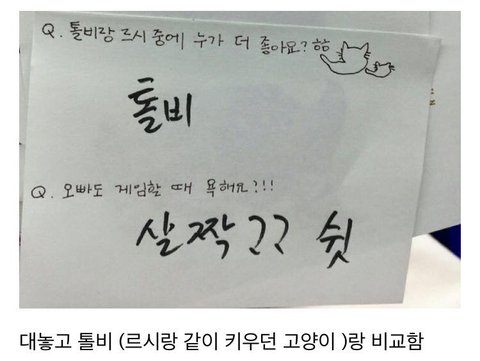 Q. 톨비랑 르시 중에 누가 더 좋아요? 핢
톨비
Q. 오빠도 게임할 때 욕해요?!!!
살짝 ?? 쉿
대놓고 톨비 (르시랑 같이 키우던 고양이 )랑 비교함